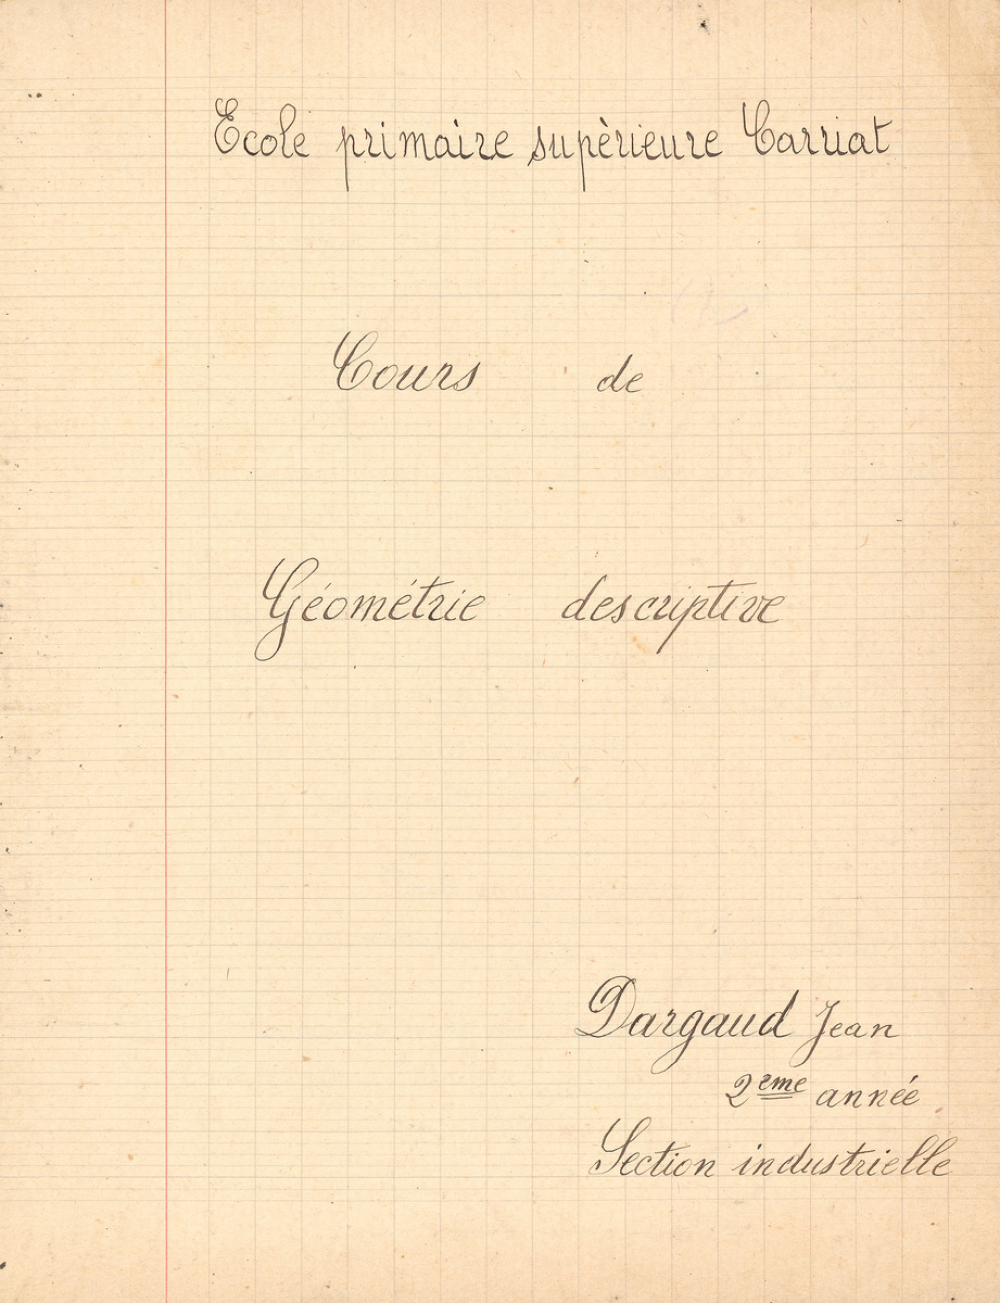 Ecole primaire supèrieure Carriat
Cours de
Géométrie descriptive
Dargaud Jean
2eme année
Section industrielle